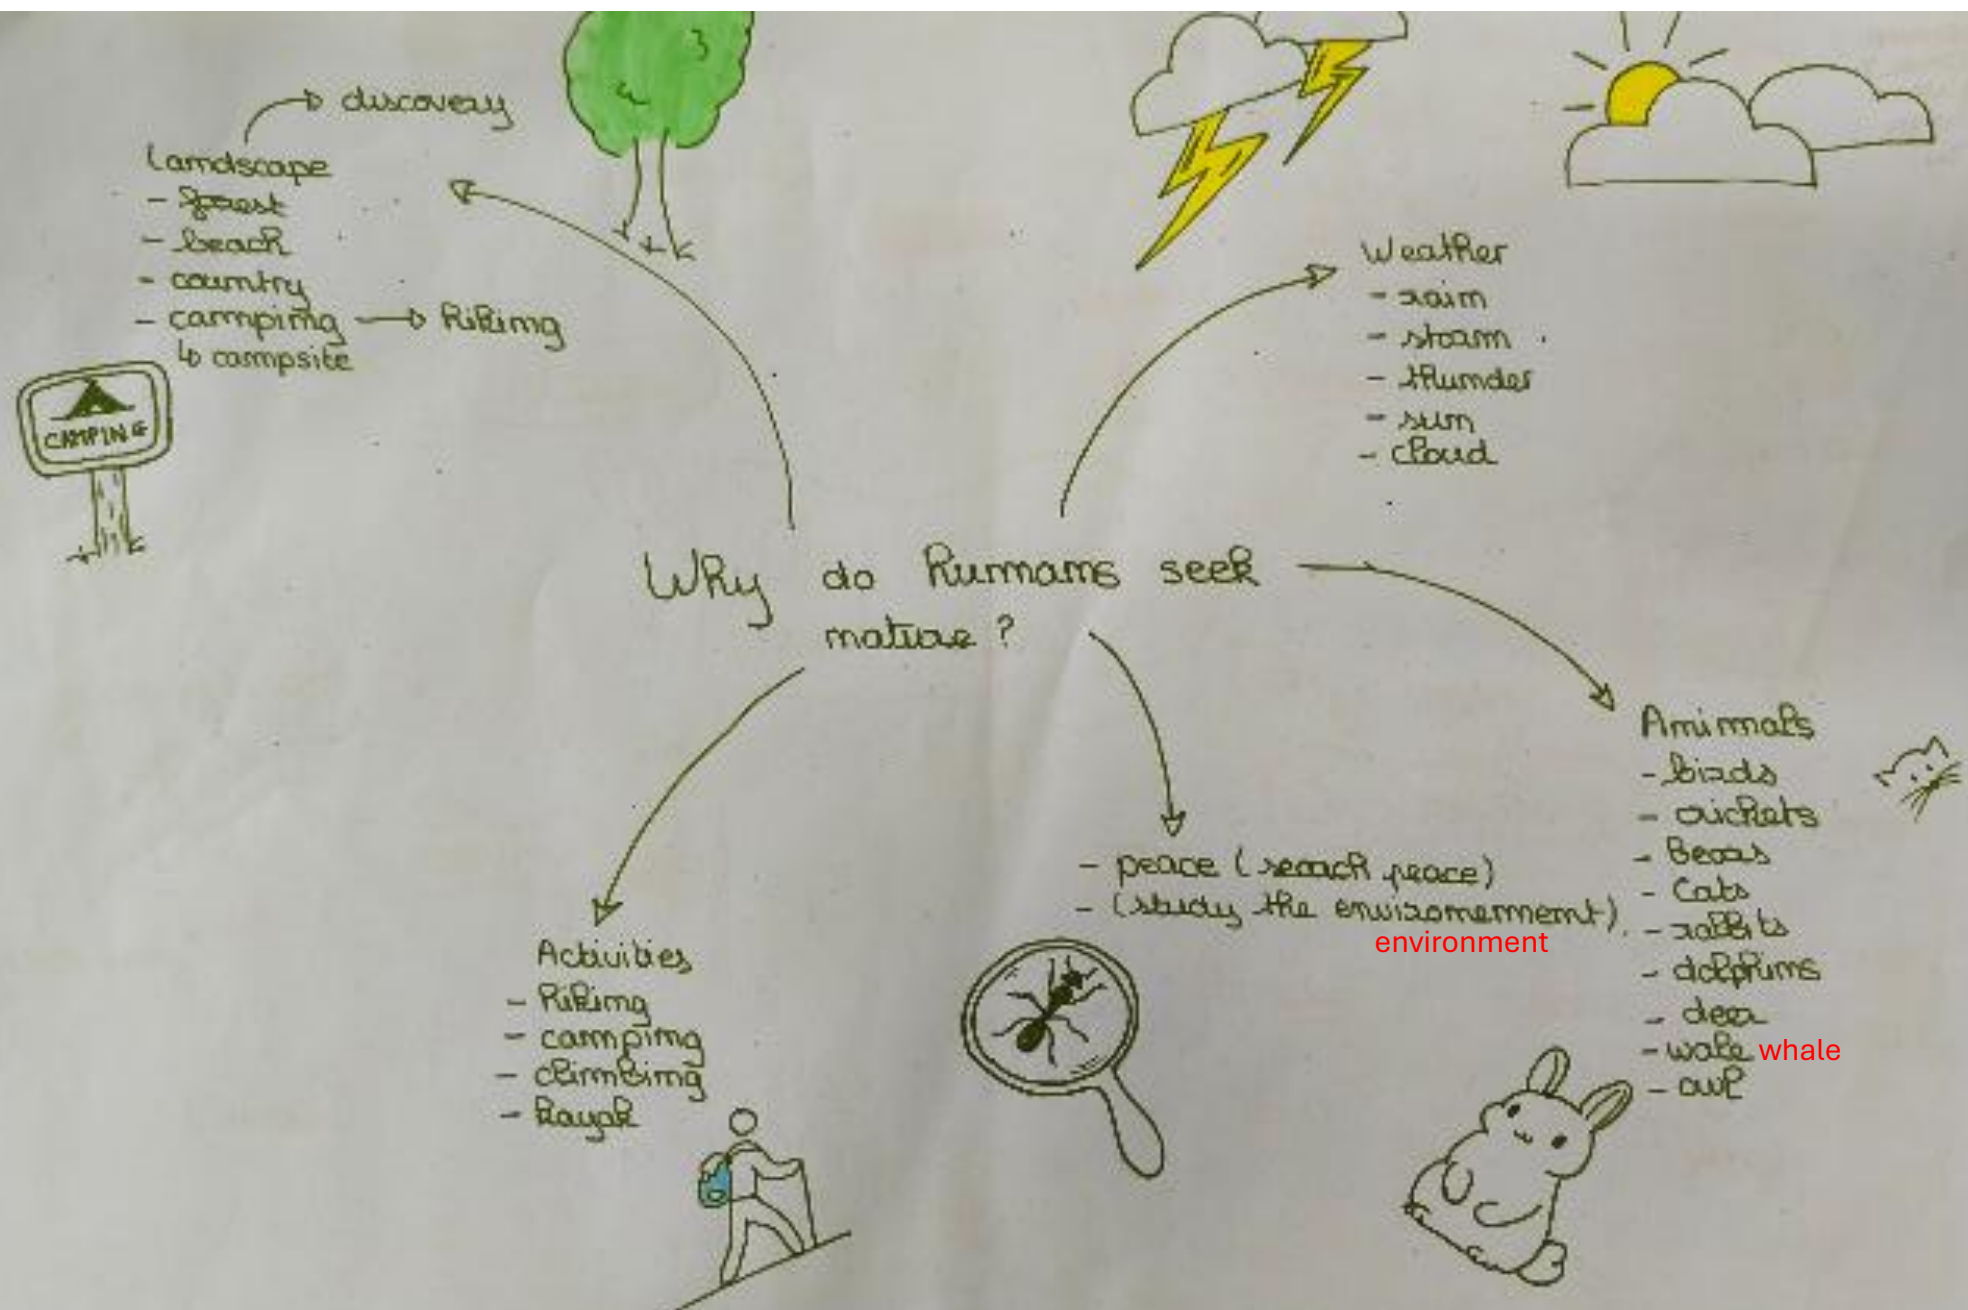 Why do humans seek
nature ?
discovery
Landscape
- forest
- beach
- country
- camping → hiking
↳ campsite
CAMPING
Weather
- rain
- storm
- thunder
- sun
- cloud
Animals
- birds
- crickets
- Bears
- Cats
- rabbits
- dolphins
- deer
- wale whale
- owl
- peace (search peace)
- (study the environement).
environment
Activities
- hiking
- camping
- climbing
- kayak